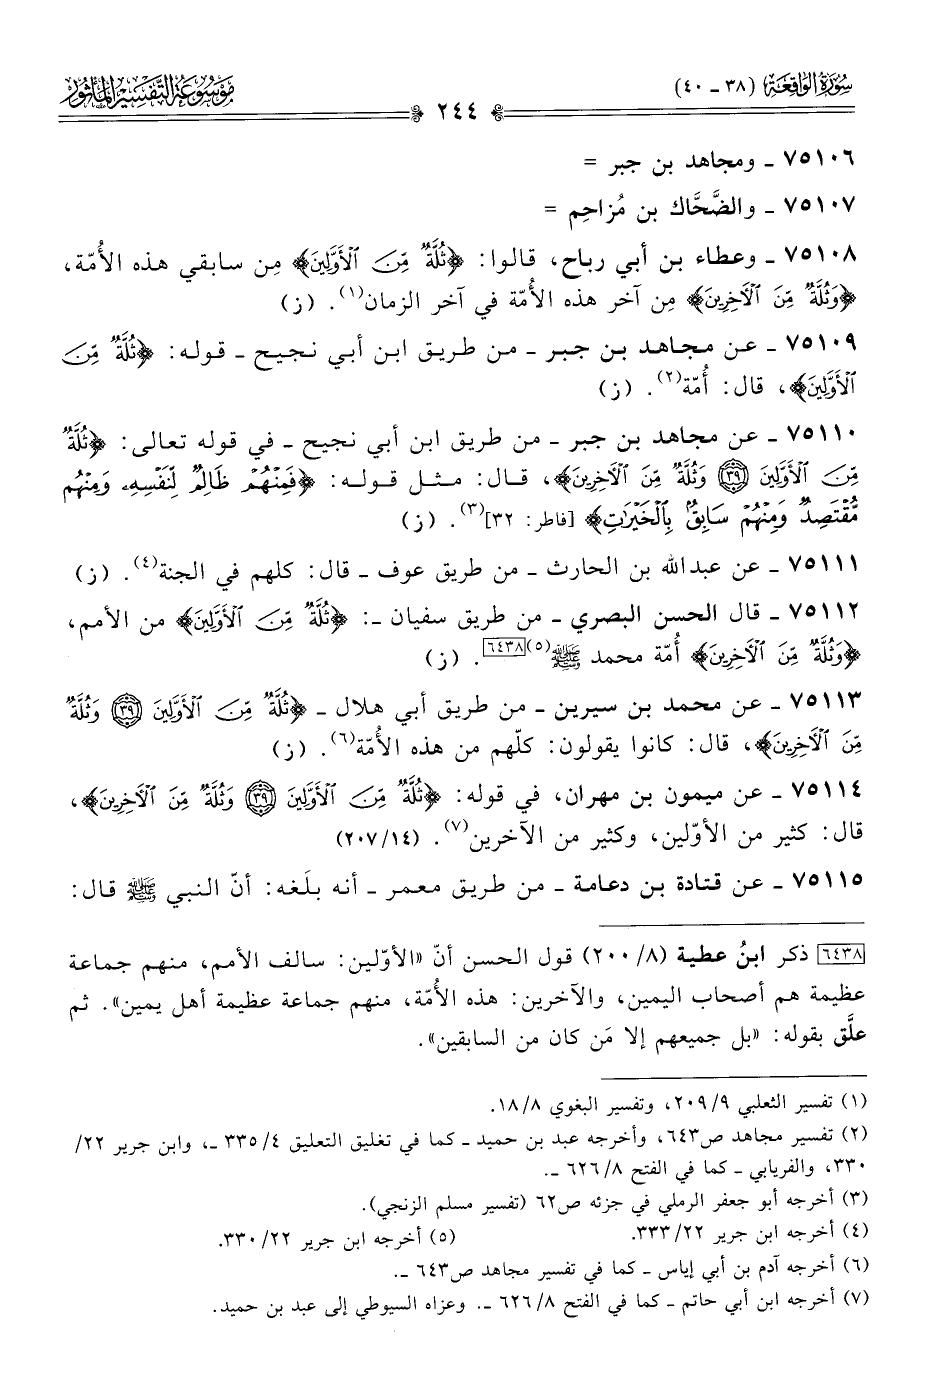 سُورَةُ الوَاقِعَة (٣٨ - ٤٠)
٢٤٤
مَوْسُوعَةُ التَّفْسِيرِ المَأْثُور
٧٥١٠٦ - ومجاهد بن جبر =
٧٥١٠٧ - والضَّحَّاك بن مُزاحِم =
٧٥١٠٨ - وعطاء بن أبي رباح، قالوا: ﴿ثُلَّةٌ مِّنَ ٱلْأَوَّلِينَ﴾ مِن سابقي هذه الأُمّة،
﴿وَثُلَّةٌ مِّنَ ٱلْأَخِرِينَ﴾ مِن آخر هذه الأُمّة في آخر الزمان(١). (ز)
٧٥١٠٩ - عن مجاهد بن جبر - من طريق ابن أبي نجيح - قوله: ﴿ثُلَّةٌ مِّنَ
ٱلْأَوَّلِينَ﴾، قال: أُمّة(٢). (ز)
٧٥١١٠ - عن مجاهد بن جبر - من طريق ابن أبي نجيح - في قوله تعالى: ﴿ثُلَّةٌ
مِّنَ ٱلْأَوَّلِينَ ٣٩ وَثُلَّةٌ مِّنَ ٱلْأَخِرِينَ﴾، قال: مثل قوله: ﴿فَمِنْهُمْ ظَالِمٌ لِّنَفْسِهِۦ وَمِنْهُم
مُّقْتَصِدٌ وَمِنْهُمْ سَابِقٌۢ بِٱلْخَيْرَٰتِ﴾ [فاطر: ٣٢](٣). (ز)
٧٥١١١ - عن عبدالله بن الحارث - من طريق عوف - قال: كلهم في الجنة(٤). (ز)
٧٥١١٢ - قال الحسن البصري - من طريق سفيان -: ﴿ثُلَّةٌ مِّنَ ٱلْأَوَّلِينَ﴾ من الأمم،
﴿وَثُلَّةٌ مِّنَ ٱلْأَخِرِينَ﴾ أُمّة محمد ﷺ(٥)[٦٤٣٨]. (ز)
٧٥١١٣ - عن محمد بن سيرين - من طريق أبي هلال - ﴿ثُلَّةٌ مِّنَ ٱلْأَوَّلِينَ ٣٩ وَثُلَّةٌ
مِّنَ ٱلْأَخِرِينَ﴾، قال: كانوا يقولون: كلّهم من هذه الأُمّة(٦). (ز)
٧٥١١٤ - عن ميمون بن مهران، في قوله: ﴿ثُلَّةٌ مِّنَ ٱلْأَوَّلِينَ ٣٩ وَثُلَّةٌ مِّنَ ٱلْأَخِرِينَ﴾،
قال: كثير من الأوّلين، وكثير من الآخرين(٧). (٢٠٧/١٤)
٧٥١١٥ - عن قتادة بن دعامة - من طريق معمر - أنه بلَغه: أنّ النبي ﷺ قال:
[٦٤٣٨] ذكر ابنُ عطية (٨/ ٢٠٠) قول الحسن أنّ «الأوّلين: سالف الأمم، منهم جماعة
عظيمة هم أصحاب اليمين، والآخرين: هذه الأُمّة، منهم جماعة عظيمة أهل يمين». ثم
علَّق بقوله: «بل جميعهم إلا مَن كان من السابقين».
(١) تفسير الثعلبي ٢٠٩/٩، وتفسير البغوي ١٨/٨.
(٢) تفسير مجاهد ص٦٤٣، وأخرجه عبد بن حميد - كما في تغليق التعليق ٣٣٥/٤ -، وابن جرير ٢٢/
٣٣٠، والفريابي - كما في الفتح ٦٢٦/٨ -.
(٣) أخرجه أبو جعفر الرملي في جزئه ص٦٢ (تفسير مسلم الزنجي).
(٤) أخرجه ابن جرير ٢٢/ ٣٣٣. (٥) أخرجه ابن جرير ٢٢/ ٣٣٠.
(٦) أخرجه آدم بن أبي إياس - كما في تفسير مجاهد ص٦٤٣ -.
(٧) أخرجه ابن أبي حاتم - كما في الفتح ٦٢٦/٨ -. وعزاه السيوطي إلى عبد بن حميد.